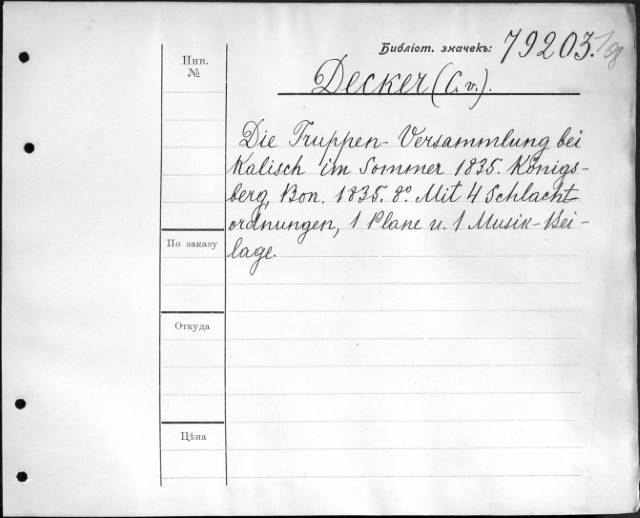 Библіот. значекъ: 79203.
Инв.
№
Decker (C. v.).
Die Truppen-Versammlung bei
Kalisch im Sommer 1835. Königs-
berg, Bon. 1835. 8º. Mit 4 Schlacht
ordnungen, 1 Plane u. 1 Musik-Bei-
lage.
По заказу
Откуда
Цѣна